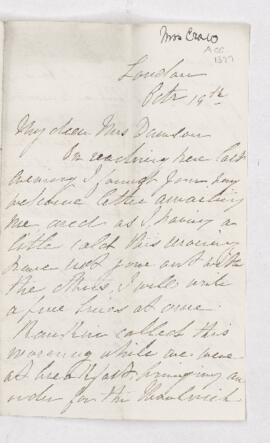 Mrs Craw
Acc
1377
London
Octr 19th
My dear Mrs Dawson
On reaching here last
evening I found your very
welcome letter awaiting
me and as I having a
little cold this morning
have not gone out with
the others, I will write
a few lines at once
Rankin called this
morning while we were
at breakfast bringing an
order for the Woolwich